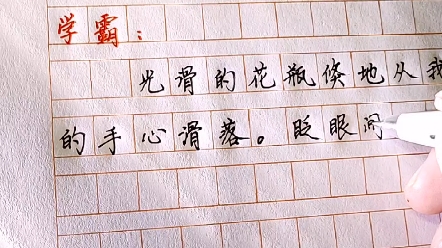 学霸：
光滑的花瓶倏地从我
的手心滑落。眨眼间